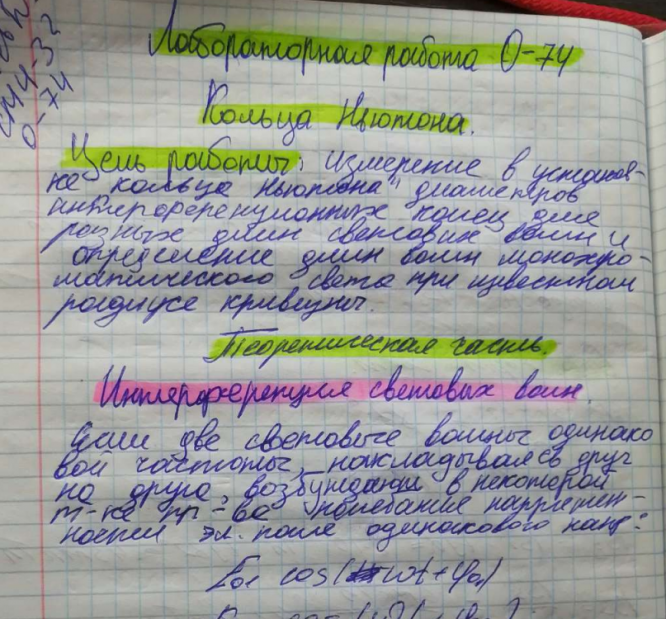 СМ4-32
О-74
Лабораторная работа О-74
Кольца Ньютона.
Цель работы: измерение в установ-
ке "кольца Ньютона" диаметров
интерференционных колец для
разных длин световых волн и
определение длин волн монохро-
матического света при известном
радиусе кривизны.
Теоретическая часть.
Интерференция световых волн.
Если две световые волны одинако
вой частоты, накладываясь друг
на друга, возбуждают в некоторой
т-ке пр-ва колебание напряжен-
ности эл. поля одинакового напр:
E01 cos(ωt+φ01)